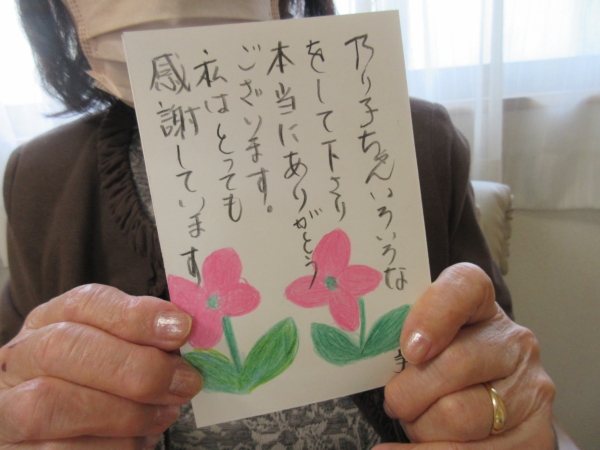 乃り子ちゃんいろいろな
をして下さり
本当にありがとう
ございます。
私はとっても
感謝しています